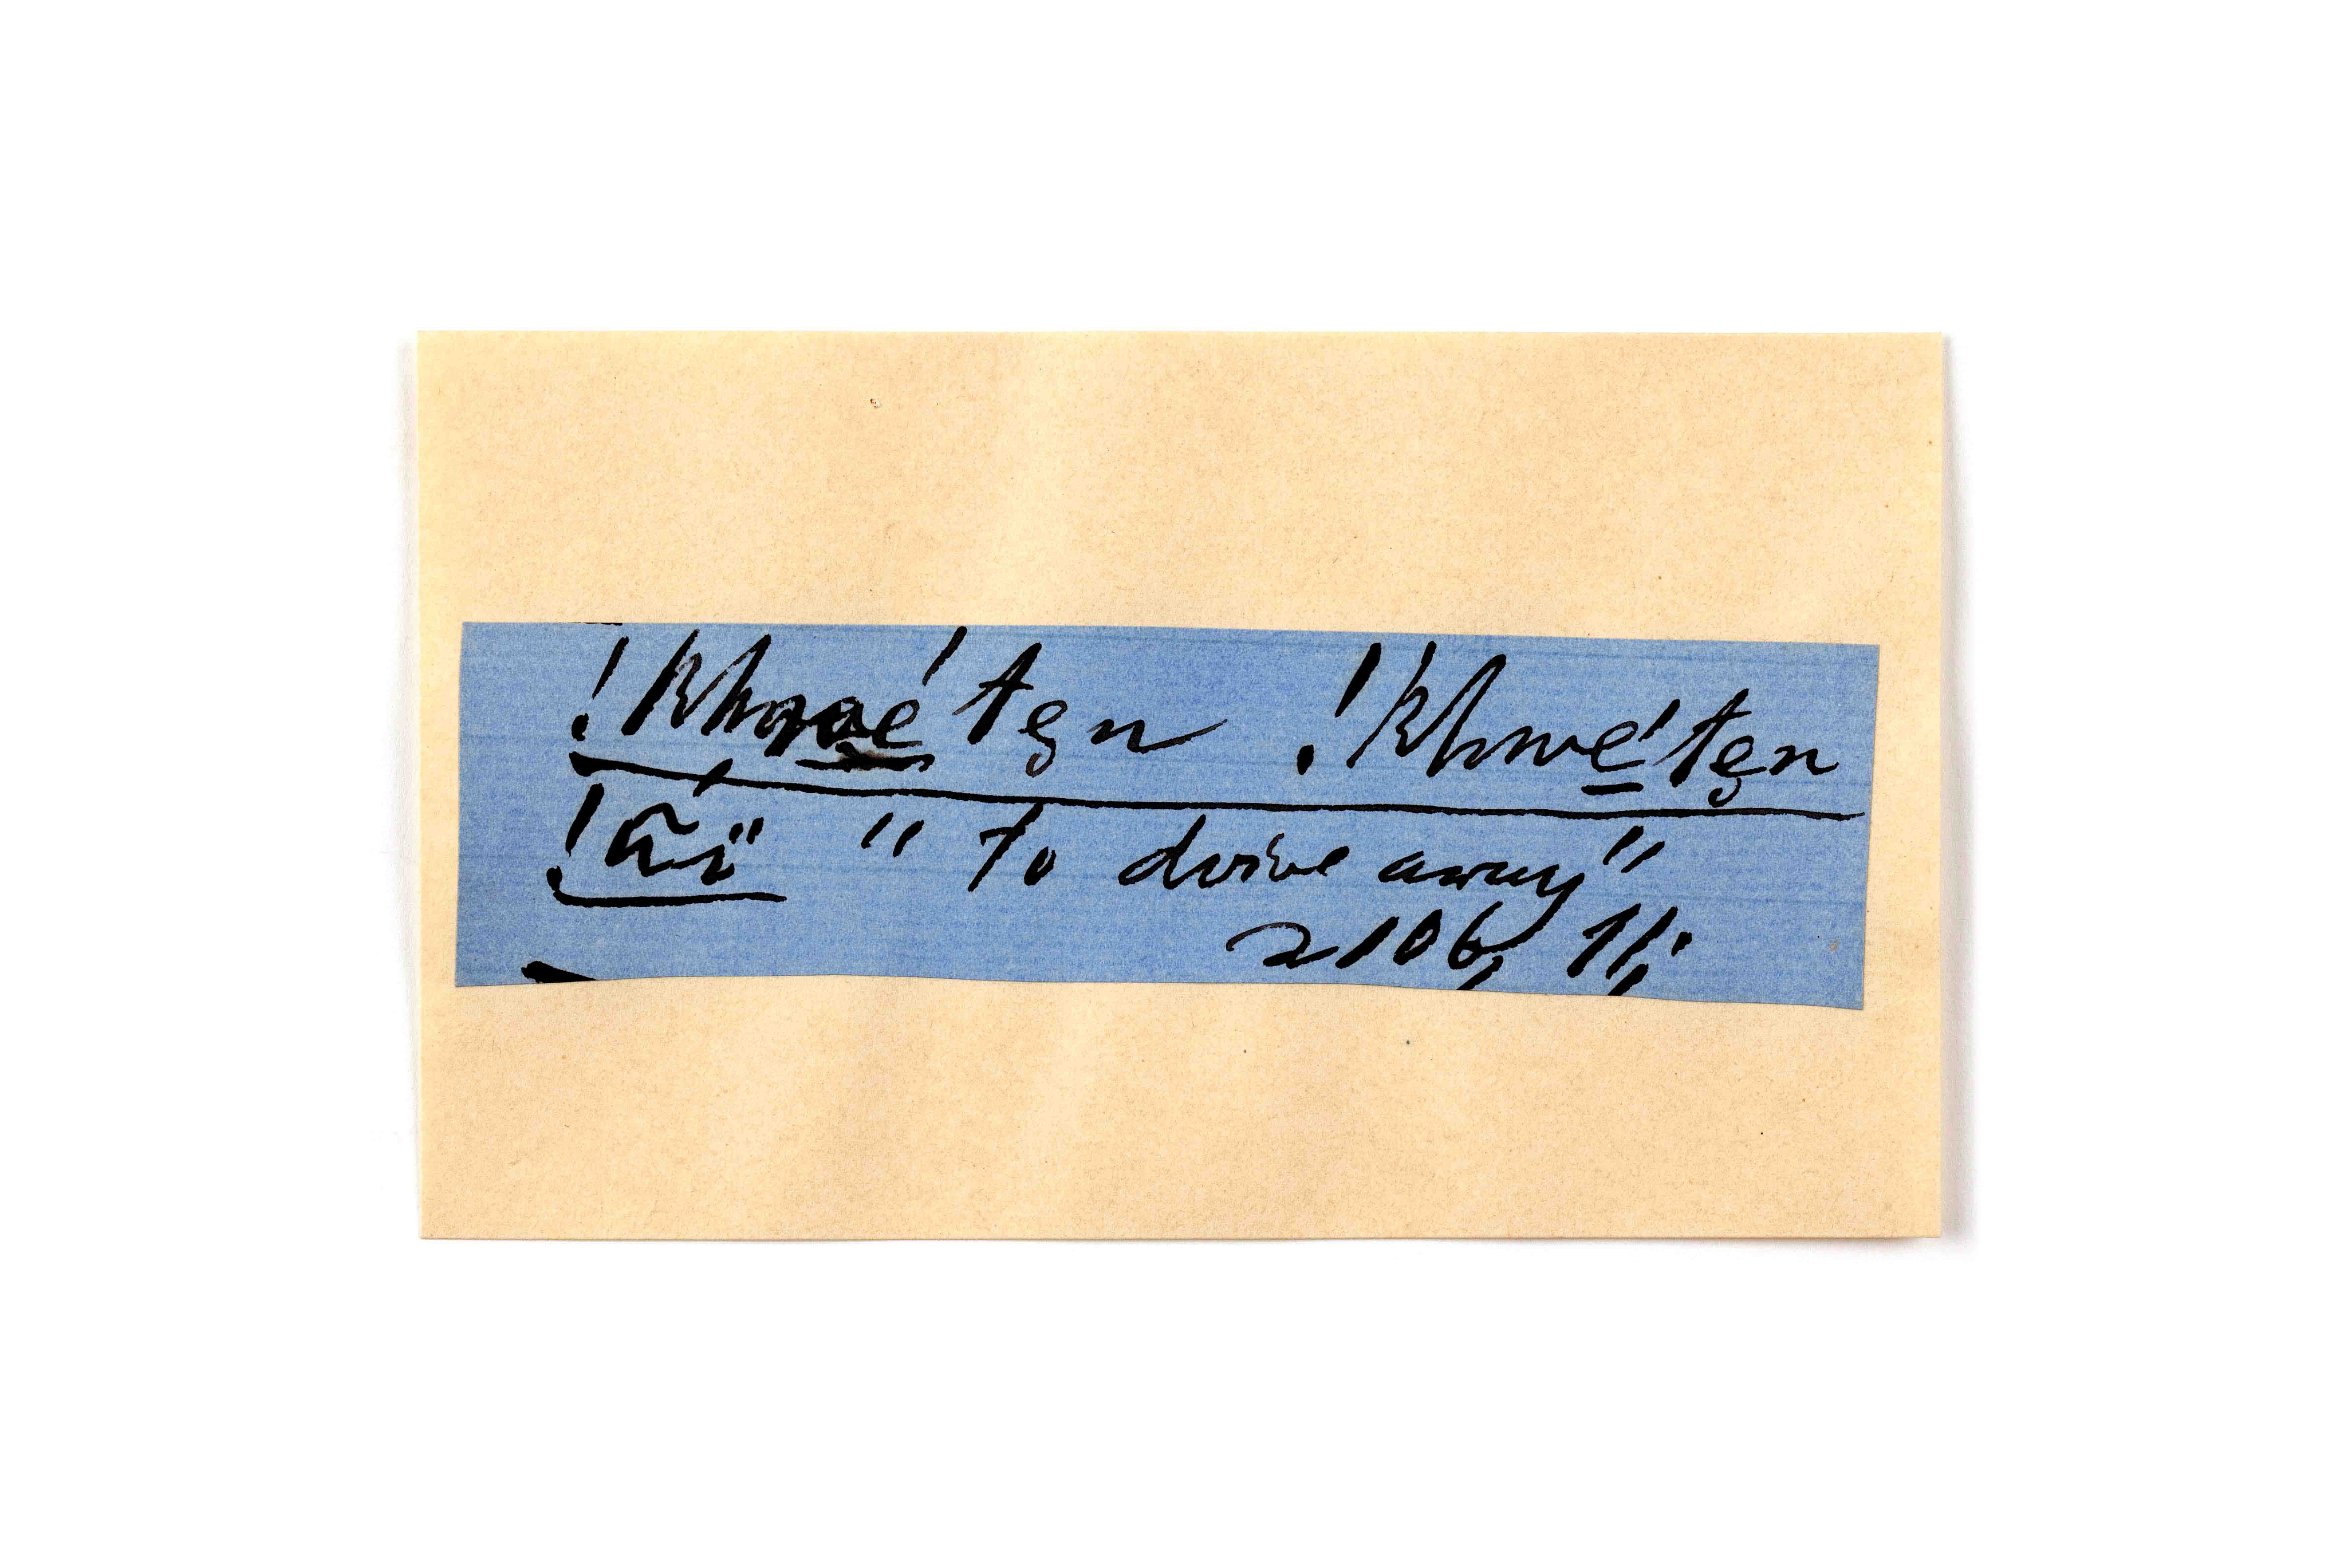 !khwé̱tẹn !khwé̱tẹn
!ã́ï "to drive away"
2106, 11;